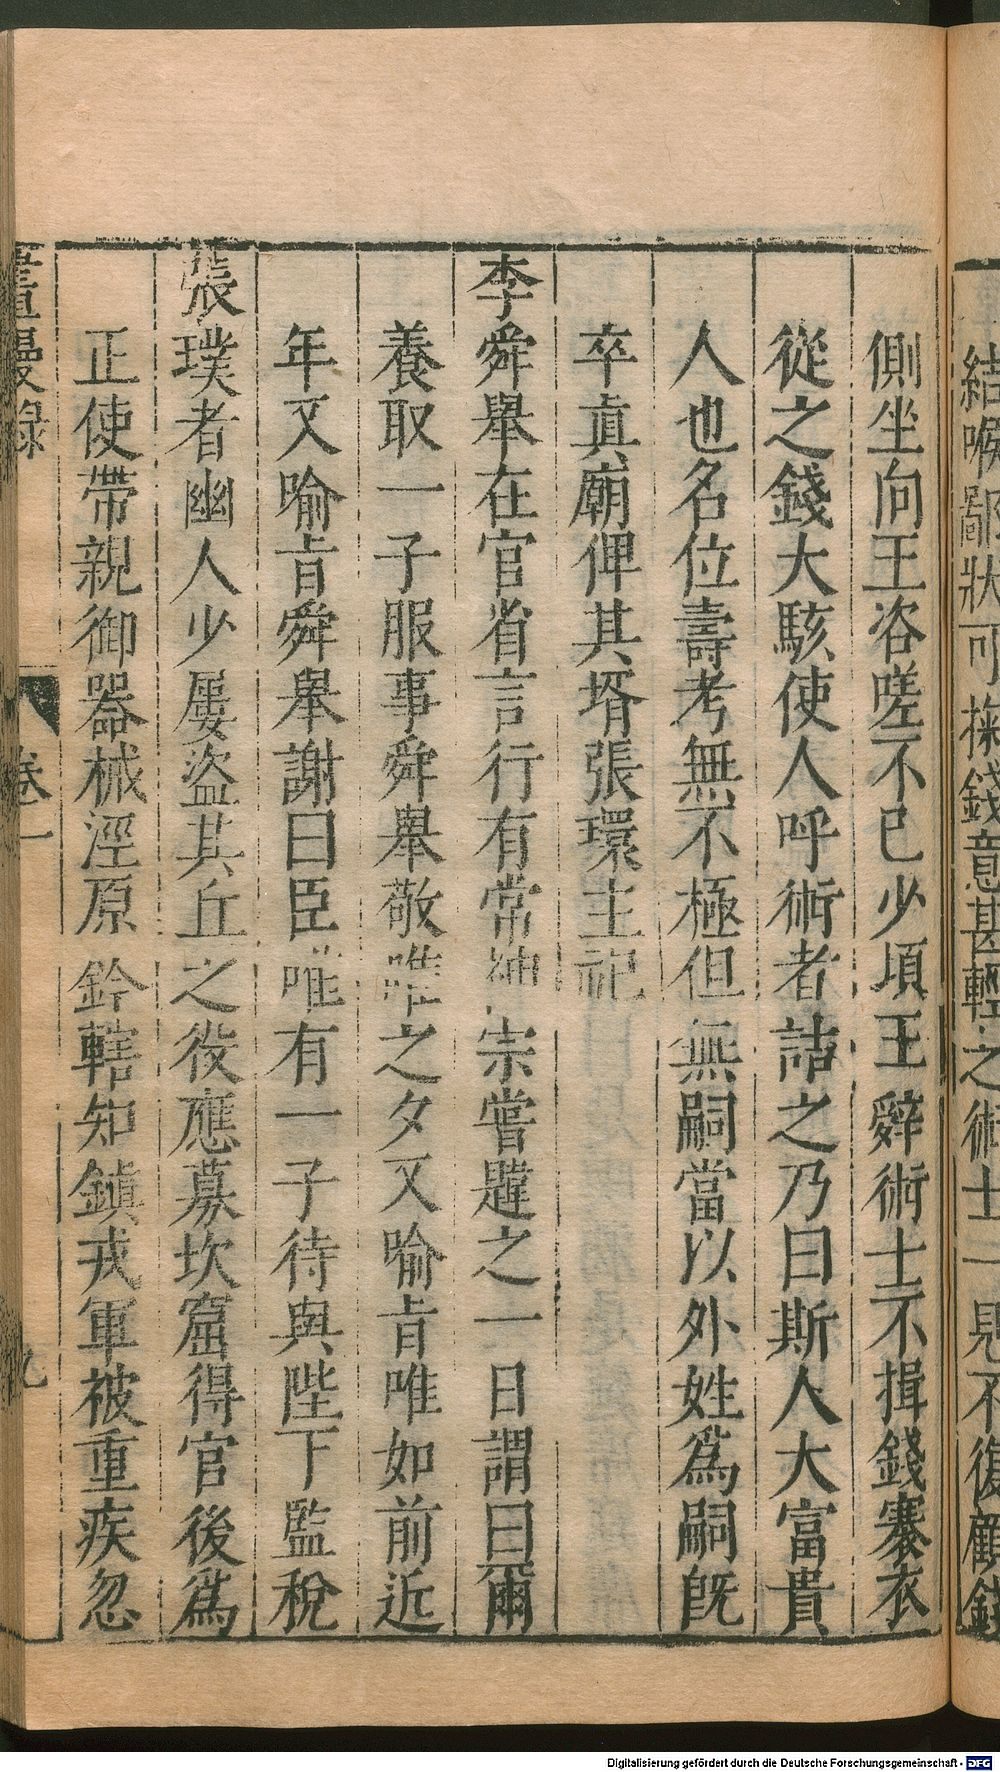 結喉鄙狀可掬錢意甚輕之術士一見不復顧錢
側坐向王咨嗟不已少頃王辭術士不揖錢褰衣
從之錢大駭使人呼術者詰之乃曰斯人大富貴
人也名位壽考無不極但無嗣當以外姓爲嗣旣
卒眞廟俾其壻張環主祀
李舜舉在官省言行有常神宗嘗韙之一日謂曰爾
養取一子服事舜舉敬唯之夕又喻旨唯如前近
年又喻旨舜舉謝曰臣唯有一子待與陛下監稅
張璞者幽人少屢盜其丘之役應募坎窟得官後爲
正使帶親御器械涇原鈐轄知鎮戎軍被重疾忽
畫墁錄
卷一
九
Digitalisierung gefördert durch die Deutsche Forschungsgemeinschaft - DFG